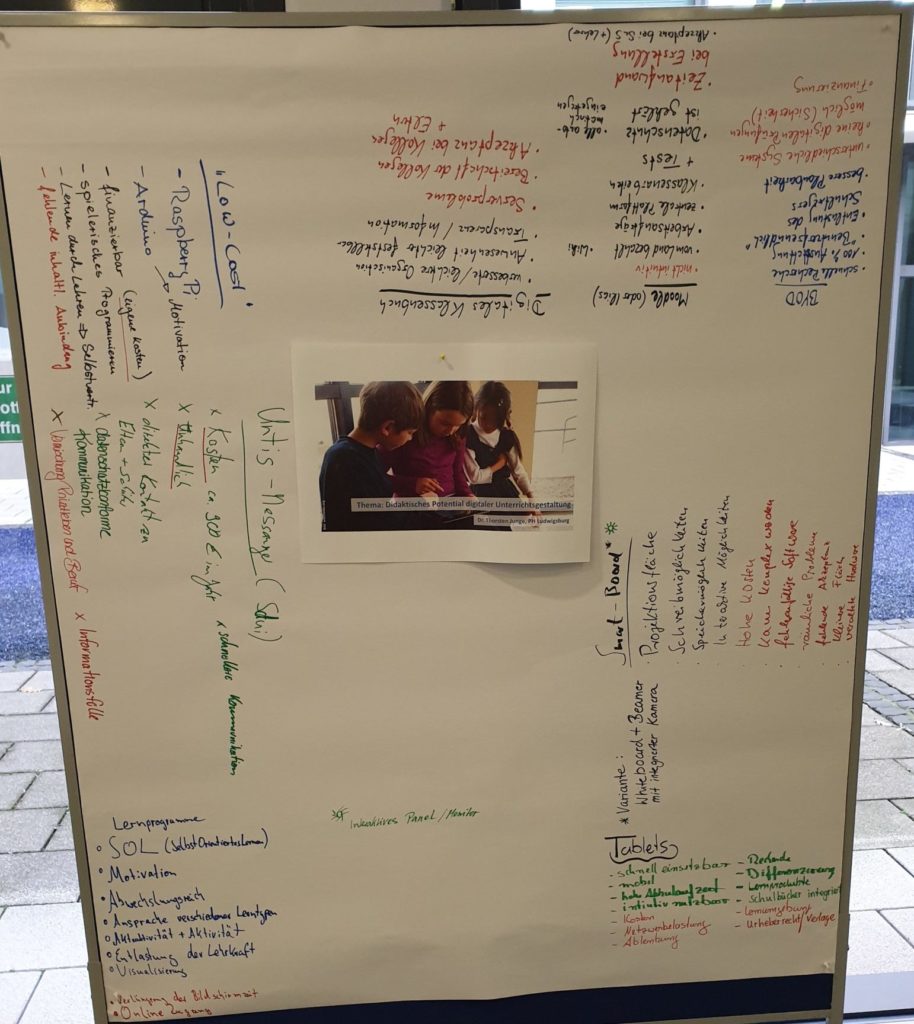 BYOD
• schnelle Recherche
• 100% Ausstattung
"Benutzerfreundlich"
• Entlastung des
Schulträgers
• bessere Planbarkeit
• unterschiedliche Systeme
• keine digitalen Prüfungen
möglich (Sicherheit)
• Finanzierung
Moodle (oder Ilias)
• nicht intuitiv
• vom Land gezahlt
• Arbeitsaufträge
• zentrale Plattform
• Klassenarbeiten
+ Tests
• Datenschutz
ist geklärt
• Zeitaufwand
bei Erstellung
• Akzeptanz bei SuS (+ Lehrer)
Digitales Klassenbuch
• verbesserte / leichtere Organisation
• Anwesenheit leichter feststellbar
• Transparenz / Information
• Serverprobleme
• Bereitschaft der Kollegen
• Akzeptanz bei Kollegen
+ Eltern
"Low-Cost"
- Raspberry Pi
→ Motivation
- Arduino
- finanzierbar (eigene Kosten)
- spielerisches Programmieren
- Lernen durch Lehren ⇒ Selbstvertr.
- fehlende inhaltl. Anbindung
Untis-Messenger (Sdui)
x Kosten ca 900 € im Jahr
x schnellere Kommunikation
x direkter Kontakt zu
Eltern + Schüler
x datenschutzkonforme
Kommunikation
x Vermischung Privatleben und Beruf
x Informationsfülle
Thema: Didaktisches Potential digitaler Unterrichtsgestaltung
Dr. Thorsten Junge, PH Ludwigsburg
Smart-Board *
· Projektionsfläche
· Schreibmöglichkeiten
· Speichermöglichkeiten
· Interaktive Möglichkeiten
· Hohe Kosten
· Kann komplex werden
· fehleranfällige Software
· räumliche Probleme
· fehlende Akzeptanz
· kleinere Fläch
· veraltete Hardware
* Variante:
Whiteboard + Beamer
mit integrierter Kamera
Interaktives Panel / Monitor
Tablets
- schnell einsetzbar
- mobil
- intuitiv nutzbar
- Kosten
- Netzwerkbelastung
- Ablenkung
- Recherche
- Differenzierung
- Lernprodukte
- Schulbücher integriert
- Lernumgebung
- Urheberrecht / Verlage
Lernprogramme
• SOL (SelbstOrientiertesLernen)
• Motivation
• Abwechslungsreich
• Ansprache verschiedener Lerntypen
• Attraktivität + Aktivität
• Entlastung der Lehrkraft
• Visualisierung
• Verlängerung der Bildschirmzeit
• Online Zugang